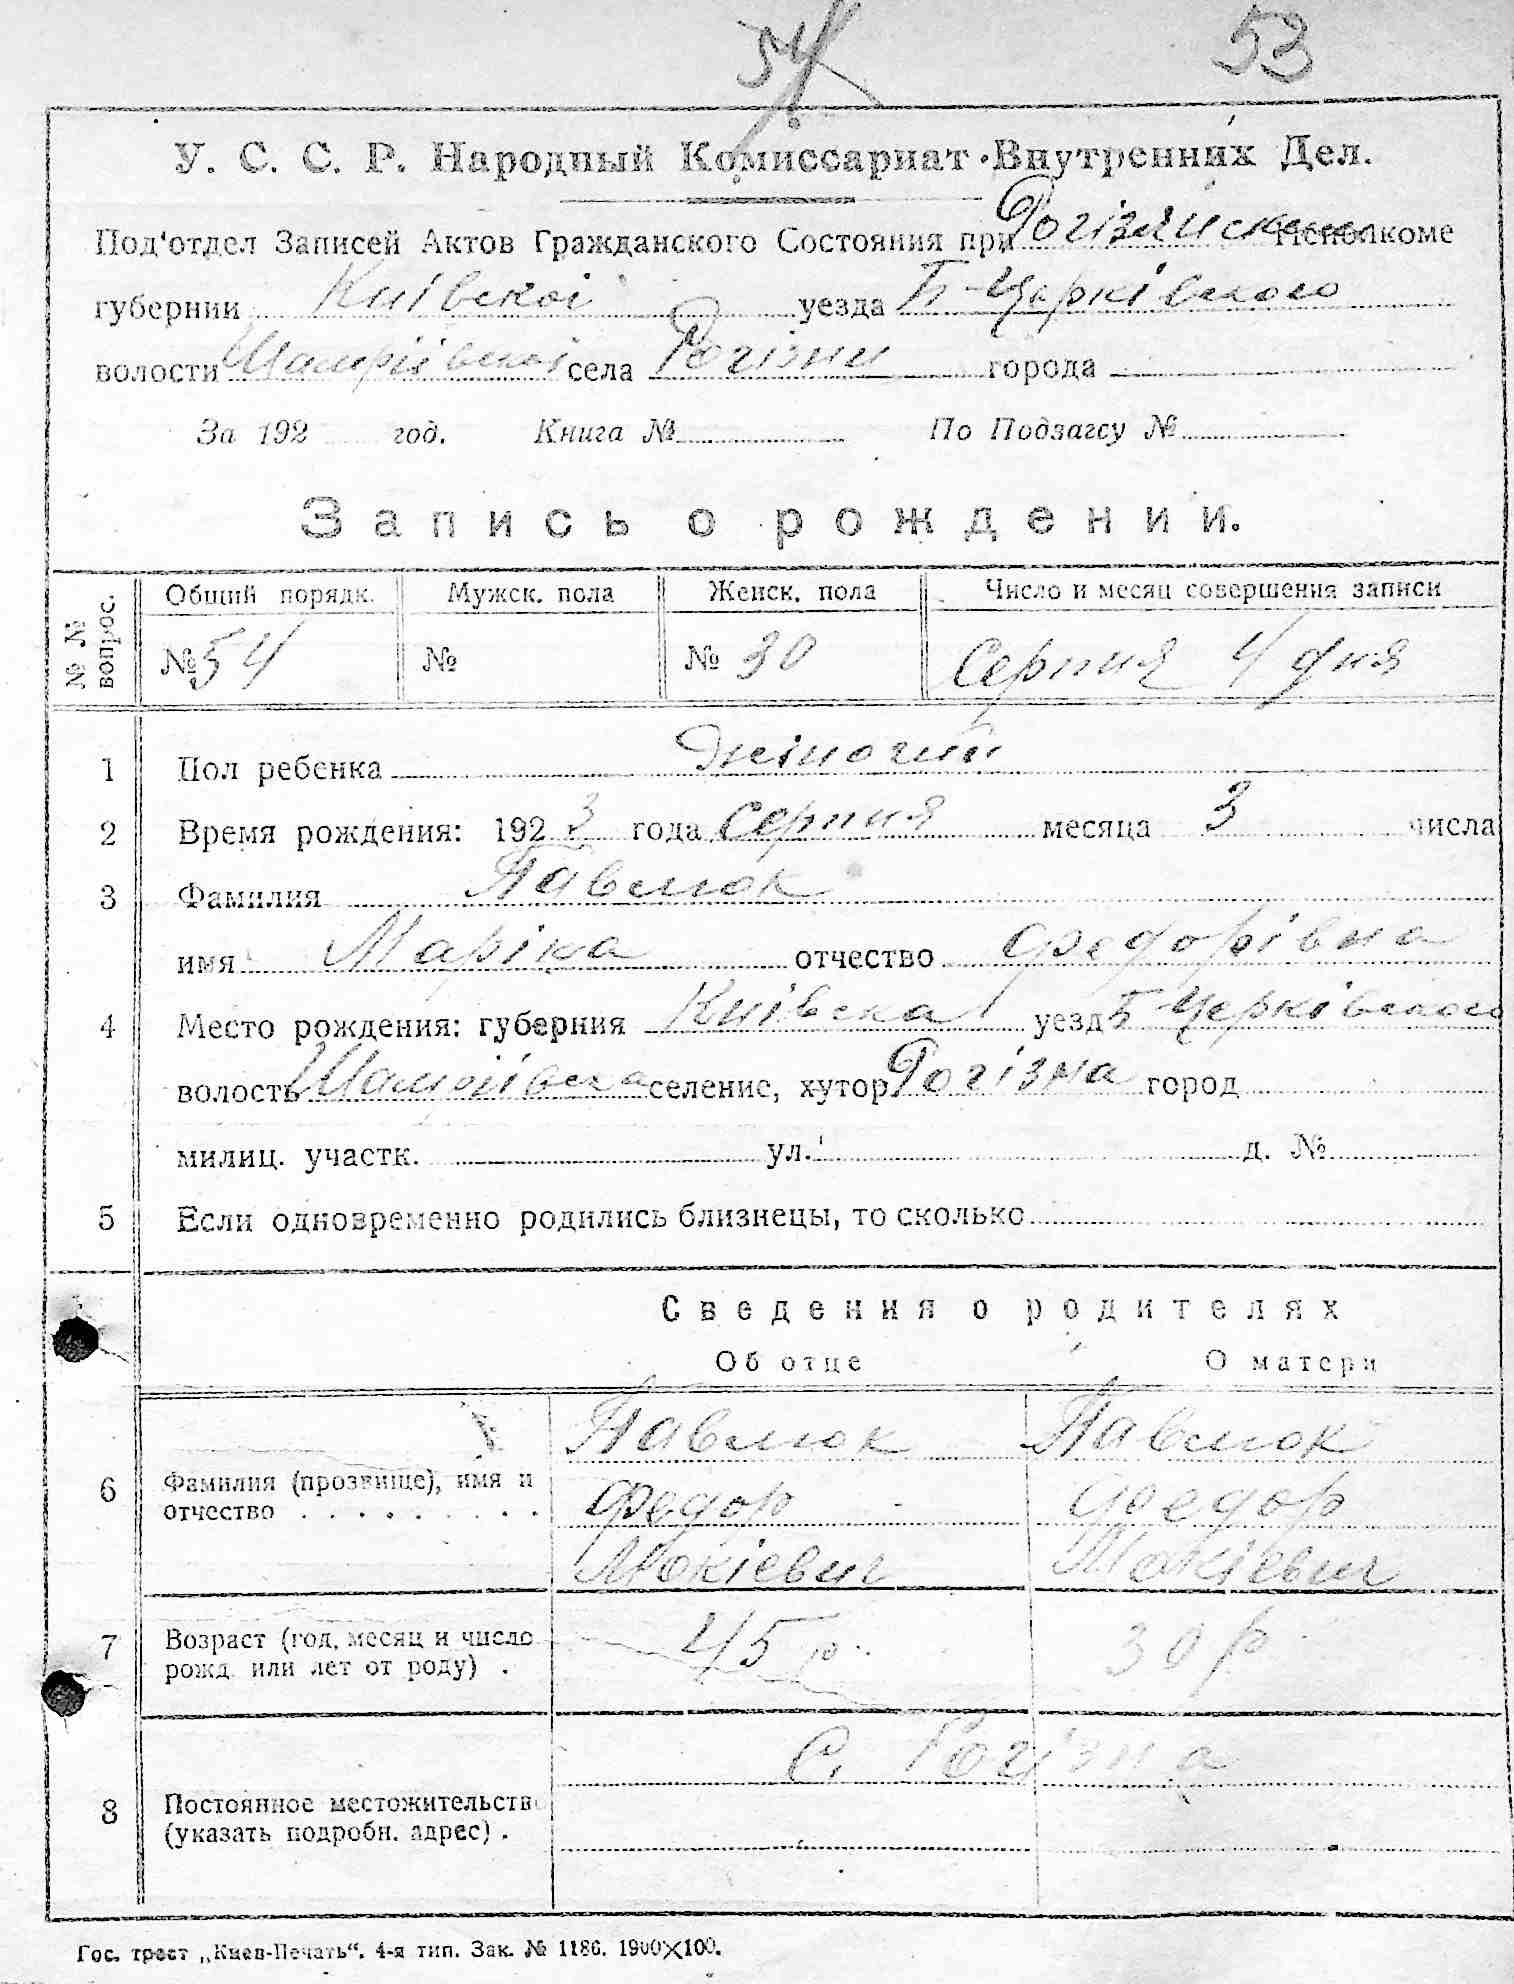 54 53
У. С. С. Р. Народный Комиссариат Внутренних Дел.
Под'отдел Записей Актов Гражданского Состояния при Рогізянском Исполкоме
губернии Київскої уезда Б-Церківского
волости Шамріївскої села Рогізни города
За 192 год. Книга № По Подзагсу №
Запись о рождении.
№ № вопрос. Общий порядк. Мужск. пола Женск. пола Число и месяц совершения записи
№ 54 № № 30 Серпня 4 дня
1 Пол ребенка жіночий
2 Время рождения: 192 3 года серпня месяца 3 числа
3 Фамилия Павлюк
имя Маріка отчество Федорівна
4 Место рождения: губерния Київска уезд Б Церківского
волость Шамріївска селение, хутор Рогізна город
милиц. участк. ул. д. №
5 Если одновременно родились близнецы, то сколько
Сведения о родителях
Об отце О матери
Павлюк Павлюк
6 Фамилия (прозвище), имя и отчество Федор Феедор
Мокієвич Мокієвич
7 Возраст (год, месяц и число рожд. или лет от роду) . 45 р. 30 р.
С. Рогізна
8 Постоянное местожительств (указать подробн. адрес) .
Гос. трест „Киев-Печать“. 4-я тип. Зак. № 1186. 1900×100.